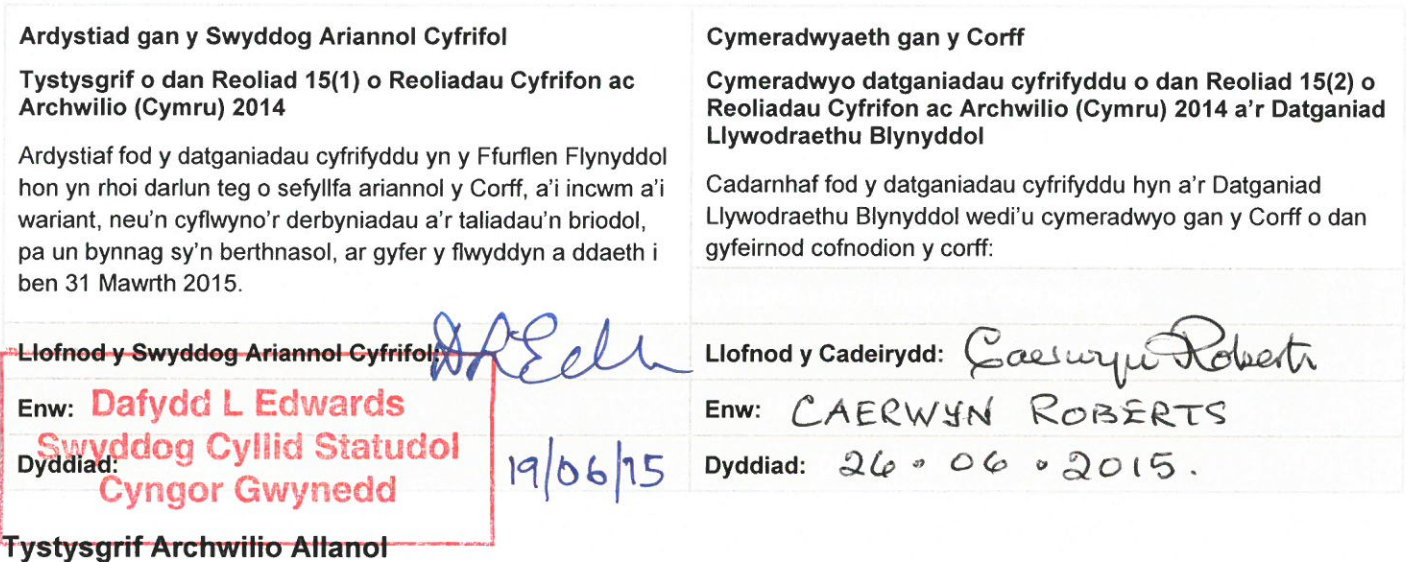 Ardystiad gan y Swyddog Ariannol Cyfrifol
Tystysgrif o dan Reoliad 15(1) o Reoliadau Cyfrifon ac
Archwilio (Cymru) 2014
Ardystiaf fod y datganiadau cyfrifyddu yn y Ffurflen Flynyddol
hon yn rhoi darlun teg o sefyllfa ariannol y Corff, a'i incwm a'i
wariant, neu'n cyflwyno'r derbyniadau a'r taliadau'n briodol,
pa un bynnag sy'n berthnasol, ar gyfer y flwyddyn a ddaeth i
ben 31 Mawrth 2015.
Llofnod y Swyddog Ariannol Cyfrifol:
Enw: Dafydd L Edwards
Swyddog Cyllid Statudol
Dyddiad: 19/06/15
Cyngor Gwynedd
Cymeradwyaeth gan y Corff
Cymeradwyo datganiadau cyfrifyddu o dan Reoliad 15(2) o
Reoliadau Cyfrifon ac Archwilio (Cymru) 2014 a'r Datganiad
Llywodraethu Blynyddol
Cadarnhaf fod y datganiadau cyfrifyddu hyn a'r Datganiad
Llywodraethu Blynyddol wedi'u cymeradwyo gan y Corff o dan
gyfeirnod cofnodion y corff:
Llofnod y Cadeirydd: Caerwyn Roberts
Enw: CAERWYN ROBERTS
Dyddiad: 26 . 06 . 2015.
Tystysgrif Archwilio Allanol